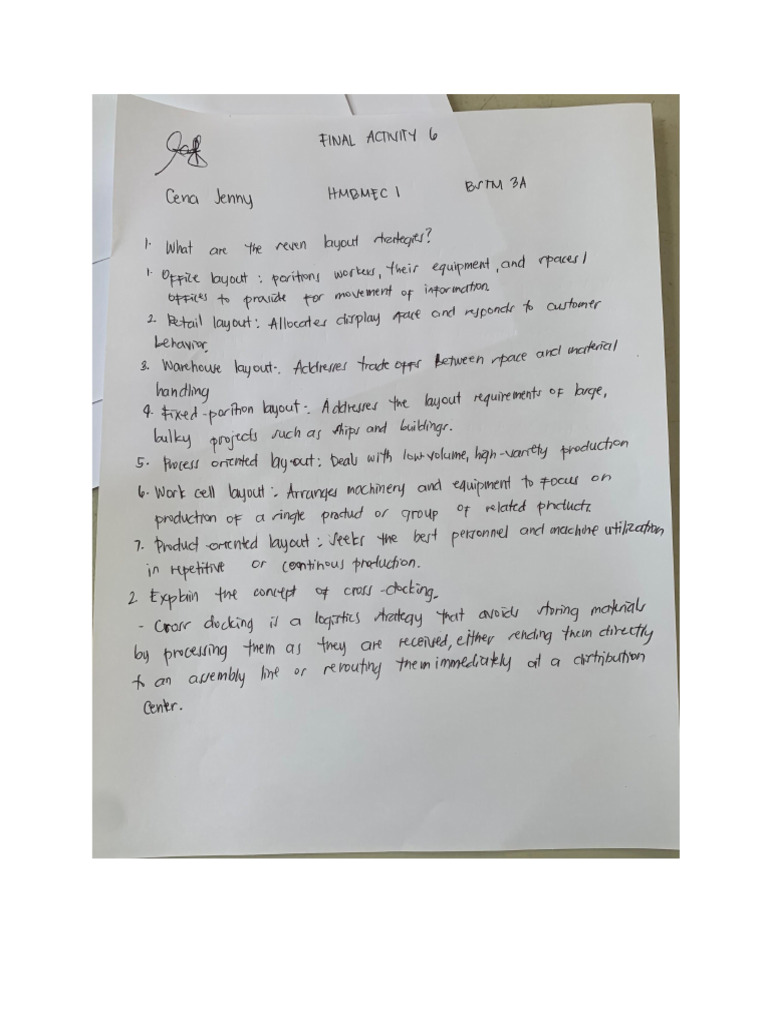 FINAL ACTIVITY 6
Cena Jenny HMBMEC 1 BSTM 3A
1. What are the seven layout strategies?
1. Office layout : positions workers, their equipment, and spaces/
offices to provide for movement of information.
2. Retail layout : Allocates display space and responds to customer
behavior.
3. Warehouse layout : Addresses trade offs between space and material
handling
4. Fixed-position layout : Addresses the layout requirements of large,
bulky projects such as ships and buildings.
5. Process oriented lay-out : Deals with low-volume, high-variety production
6. Work cell layout : Arranges machinery and equipment to focus on
production of a single product or group of related products
7. Product-oriented layout : seeks the best personnel and machine utilization
in repetitive or continous production.
2. Explain the concept of cross-docking.
- Cross docking is a logistics strategy that avoids storing materials
by processing them as they are received, either sending them directly
to an assembly line or rerouting them immediately at a distribution
center.